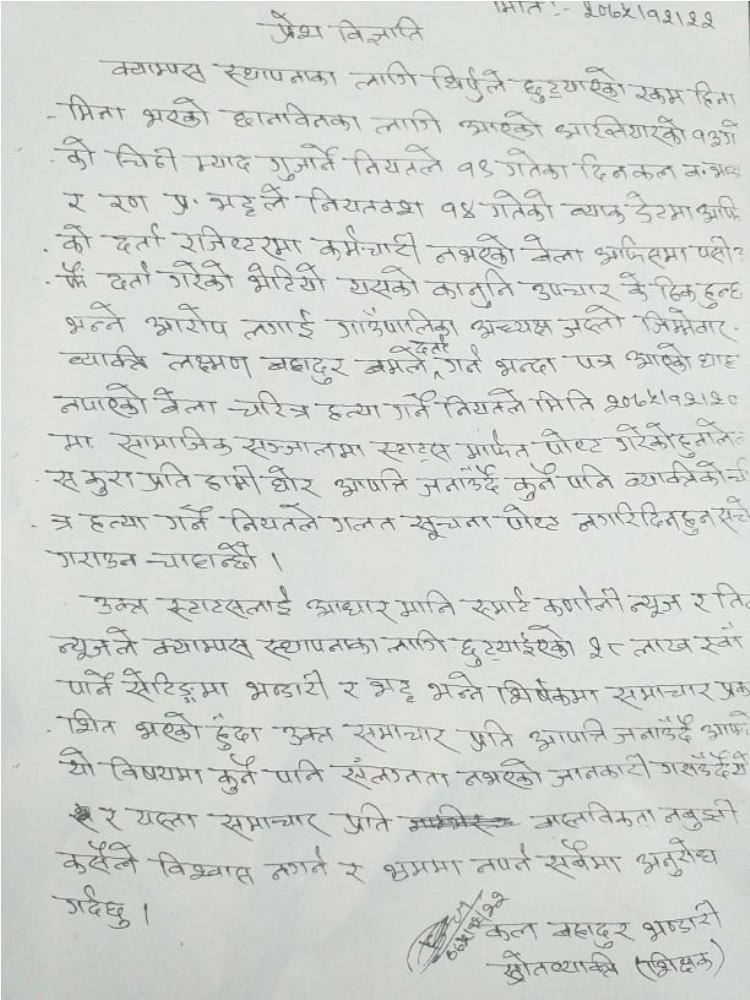 मिति :- २०७५।१२।२२
प्रेश विज्ञप्ति
क्याम्पस स्थापनाका लागि थिर्पुले छुट्याएको रकम हिना
- मिना भएको छानवितका लागि आएको आख्तियारको १३गे
को चिठी म्याद गुजार्ने नियतले १९ गतेका दिन कल व. भण्ड
र रण प्र. भट्टले नियतवश १४ गतेको व्याक डेटमा आफि
को दर्ता रजिष्टरमा कर्मचारी नभएको वेला आफिसमा पसी
दर्ता गरेको भेटियो यसको कानुनि उपचार के ठिक हुन्छ
भन्ने आरोप लगाई गाउँपालिका अध्यक्ष जस्तो जिम्मेवार
व्याक्ति लक्ष्मण बहादुर बमले दर्ता गर्न भन्दा पत्र आएको थाहा
नपाएको वेला चरित्र हत्या गर्ने नियतले मिति २०७५।१२।२०
मा सामाजिक सञ्जालमा स्टाट्स मार्फत पोष्ट गरेको हुनाले
स कुरा प्रति हामी घोर आपत्ति जनाउँदै कुनै पनि व्याक्तिको च
त्र हत्या गर्ने नियतले गलत सूचना पोष्ट नगरिदिनहुन सचे
गराउन चाहान्छौ ।
उक्त स्टाट्सलाई आधार मानि स्मार्ट कर्णाली न्यूज र
न्यूजले क्याम्पस स्थापनाका लागि छुट्याईएको २८ लाख स्वा
पार्ने सेटिङ्मा भण्डारी र भट्ट भन्ने शिर्षकमा समाचार प्रक
शित भएको हुँदा उक्त समाचार प्रति आपत्ति जनाउँदै आफ
यो विषयमा कुनै पनि संलग्नता नभएको जानकारी गराउँदै
र यस्ता समाचार प्रति वास्तविकता नबुझी
कसैले विश्वास नगर्न र भ्रममा नपर्न सवैमा अनुरोध
गर्दछु ।
कल बहादुर भण्डारी
स्रोतव्याक्ति (शिक्षक)